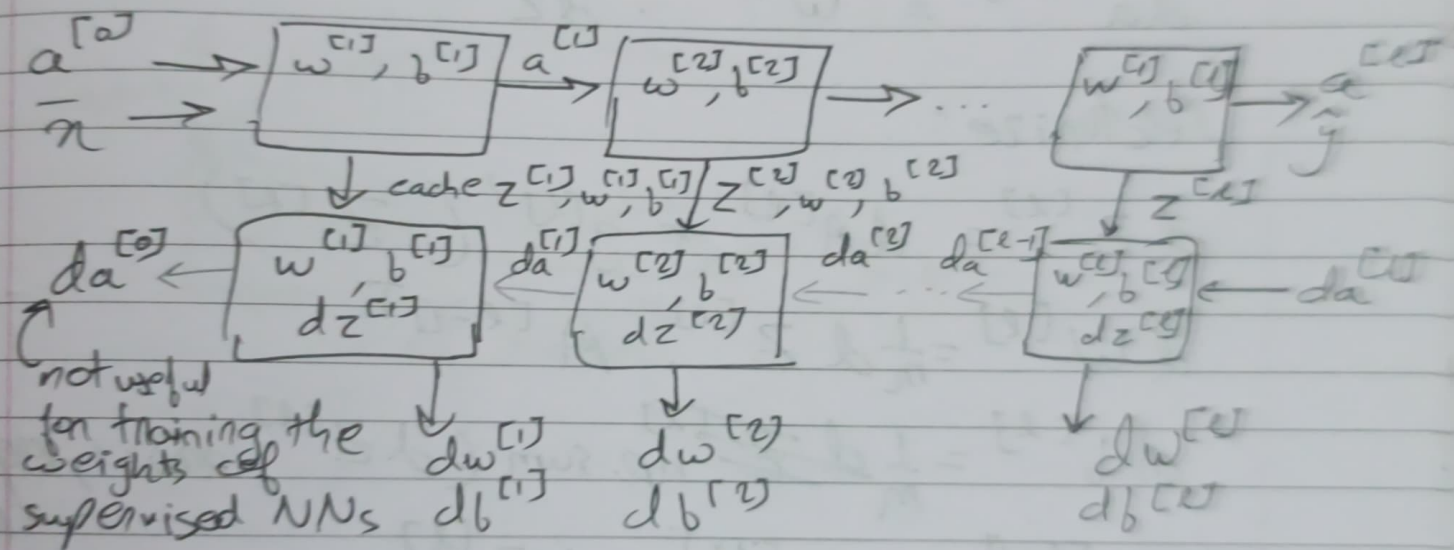 a^[0] → w^[1], b^[1] a^[1] → w^[2], b^[2] → ... w^[l], b^[l] → a^[l]
x → ŷ
cache z^[1], w^[1], b^[1] z^[2], w^[2], b^[2] z^[l]
da^[0] ← w^[1], b^[1] da^[1] ← w^[2], b^[2] da^[2] ← ... da^[l-1] ← w^[l], b^[l] ← da^[l]
dz^[1] dz^[2] dz^[l]
not useful
for training the
weights of
supervised NNs
dw^[1] dw^[2] dw^[l]
db^[1] db^[2] db^[l]